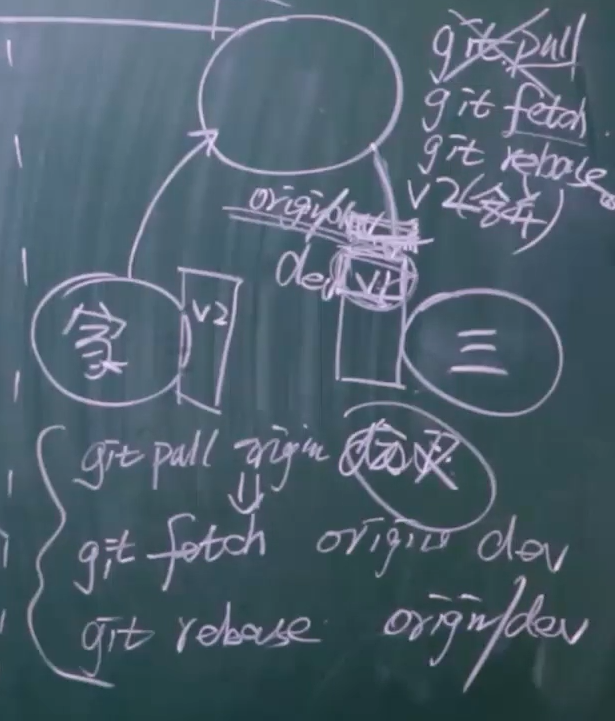 git pull
git fetch
git rebase
v2(合并)
origin/dev
dev v1
家
v2
三
git pull origin dev
git fetch origin dev
git rebase origin/dev